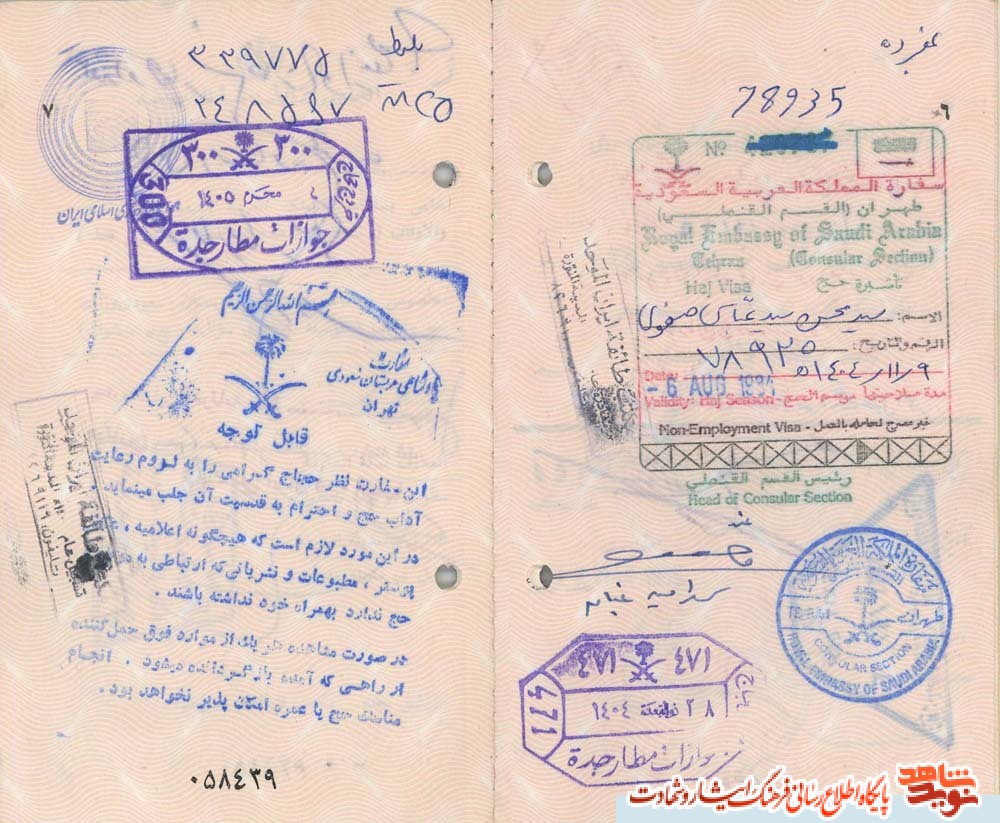 بلیط
۳۳۹۷۷۵
۲۴۸۵۶۷
۷
۳۰۰ ۳۰۰
300
محرم ١٤٠٥
جوازات مطار جدة
اسلامی ایران
بسم الله الرحمن الرحیم
سفارت
پادشاهی عربستان سعودی
تهران
قابل توجه
این سفارت نظر حجاج گرامی را به لزوم رعایت
آداب حج و احترام به قدسیت آن جلب مینماید .
در این مورد لازم است که هیچگونه اعلامیه ،
پوستر ، مطبوعات و نشریاتی که ارتباطی به
حج ندارد بهمراه خود نداشته باشند .
در صورت مشاهده هر یک از موارد فوق حمل کننده
از راهی که آمده بازگردانده میشود . انجام
مناسک حج یا عمره امکان پذیر نخواهد بود .
۰۵۸۴۳۹
بمفرده
78935
۶
Nº
سفارة المملكة العربية السعودية
طهران (القسم القنصلي)
Royal Embassy of Saudi Arabia
Tehran (Consular Section)
تأشيرة حج
Haj Visa
الاسم: سید محسن سید عباس صفوی
الرقم والتاريخ: ٧٨٩٣٥
١٤٠٤/١١/٩هـ
Date: - 6 AUG 1984
Validity: Haj Season - مدة صلاحيتها موسم الحج
Non-Employment Visa - غير مصرح لحامله بالعمل
رئيس القسم القنصلي
Head of Consular Section
عنه
طائفة ايران الموحد
المدينة المنورة
TEHRAN طهران
CONSULAR SECTION
ROYAL EMBASSY OF SAUDI ARABIA
٤٧١ ٤٧١
471
٢٨ ذوالقعدة ١٤٠٤
جوازات مطار جدة
نوید شاهد
پایگاه اطلاع رسانی فرهنگ ایثار و شهادت